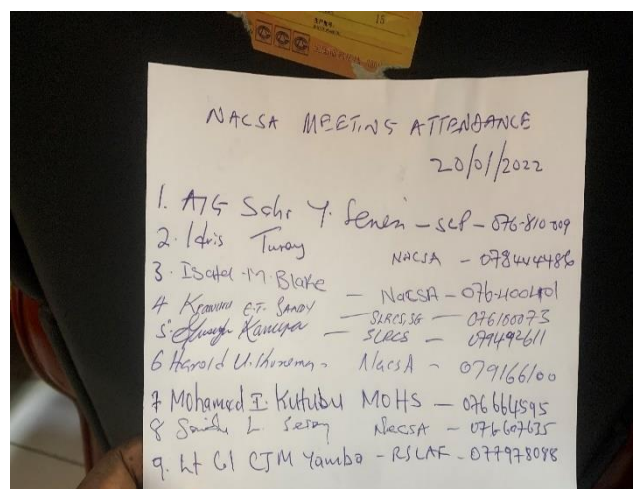 NACSA MEETING ATTENDANCE
20/01/2022
1. AIG Sahr Y. Senesi - SLP - 076-810-009
2. Idris Turay NACSA - 078444486
3. Isatal M. Blake - NaCSA - 076-400401
4 E.T. SANDY - SLRCS, SG - 076100073
5. Kamara - SLRCS - 079492611
6 Harold U. - NacsA - 079166100
7 Mohamed I. Kutubu MOHS - 076664595
8 L. Sesay NaCSA - 076607635
9. Lt Cl CJM Yamba - RSLAF - 077978098